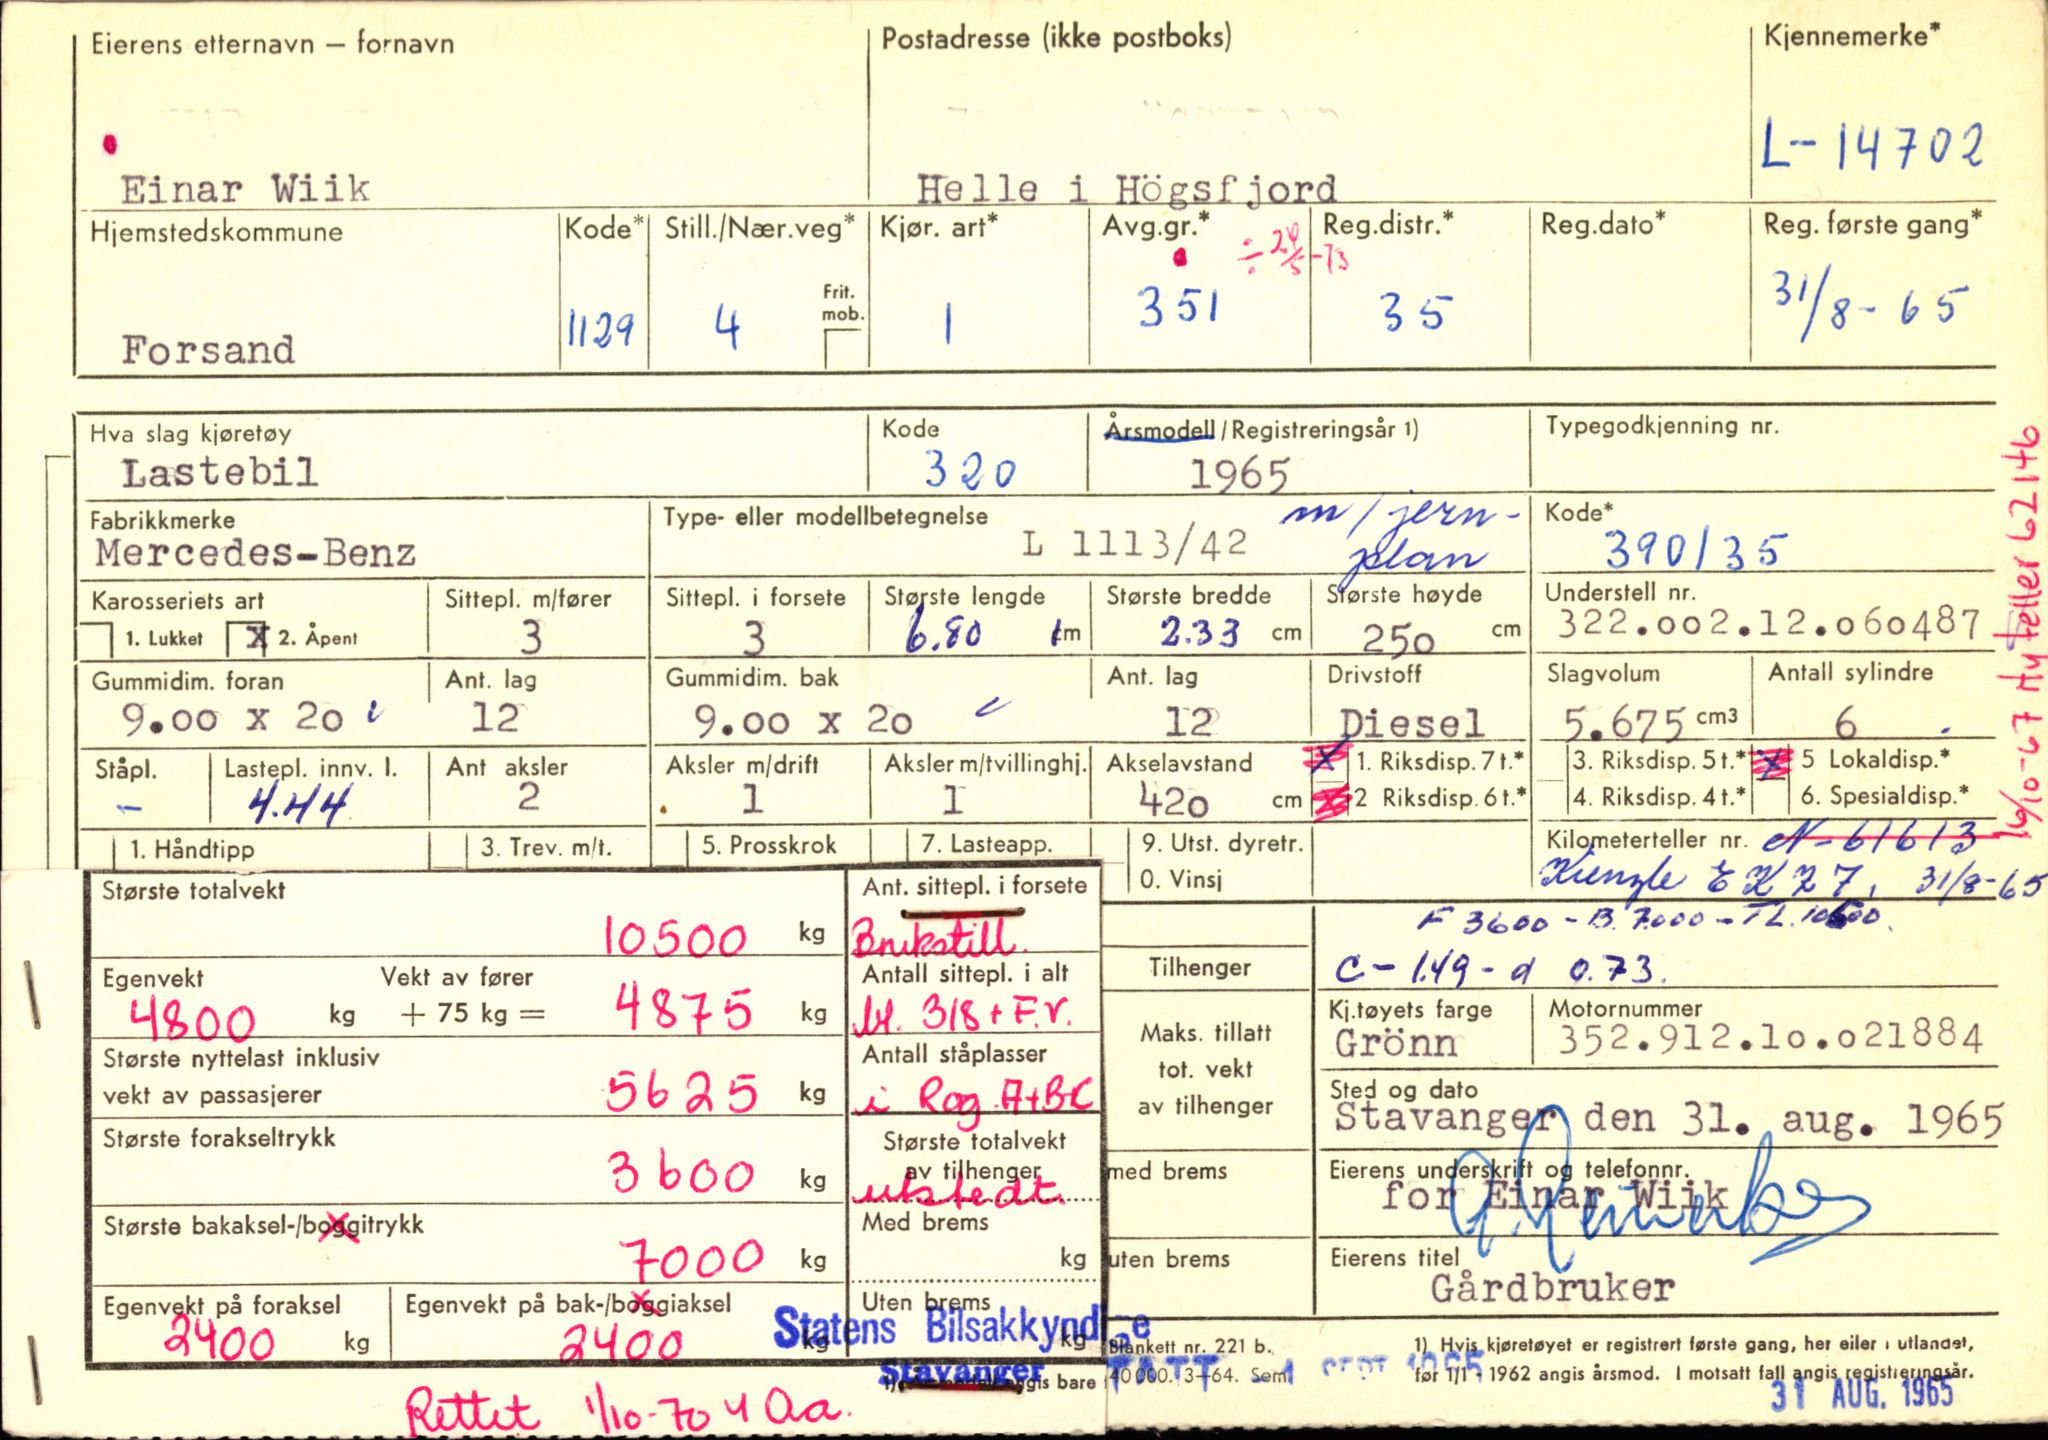 Eierens etternavn — fornavn
Einar Wiik
Postadresse (ikke postboks)
Helle i Högsfjord
Kjennemerke*
L-14702
Hjemstedskommune
Forsand
Kode*
1129
Still./Nær.veg*
4
Frit. mob.
Kjør. art*
1
Avg.gr.*
351
÷ 24/5-73
Reg.distr.*
35
Reg.dato*
Reg. første gang*
31/8-65
Hva slag kjøretøy
Lastebil
Kode
320
Årsmodell/Registreringsår 1)
1965
Typegodkjenning nr.
Fabrikkmerke
Mercedes-Benz
Type- eller modellbetegnelse
L 1113/42
m/jern-
plan
Kode*
390/35
Karosseriets art
1. Lukket X 2. Åpent
Sittepl. m/fører
3
Sittepl. i forsete
3
Største lengde
6.80 cm
Største bredde
2.33 cm
Største høyde
250 cm
Understell nr.
322.002.12.060487
Gummidim. foran
9.00 x 20
Ant. lag
12
Gummidim. bak
9.00 x 20
Ant. lag
12
Drivstoff
Diesel
Slagvolum
5.675 cm3
Antall sylindre
6
Ståpl.
-
Lastepl. innv. l.
4.44
Ant aksler
2
Aksler m/drift
1
Aksler m/tvillinghj.
1
Akselavstand
420 cm
X 1. Riksdisp. 7 t.*
X 2 Riksdisp. 6 t.*
3. Riksdisp. 5 t.*
4. Riksdisp. 4 t.*
X 5 Lokaldisp.*
6. Spesialdisp.*
1. Håndtipp
3. Trev. m/t.
5. Prosskrok
7. Lasteapp.
9. Utst. dyretr.
0. Vinsj
Kilometerteller nr. N-61613
Kienzle EKZ7, 31/8-65
16/10-67 Ny teller 62146
Største totalvekt
10500 kg
Egenvekt
4800 kg
Vekt av fører
+ 75 kg = 4875 kg
Største nyttelast inklusiv
vekt av passasjerer
5625 kg
Største forakseltrykk
3600 kg
Største bakaksel-/boggitrykk
7000 kg
Egenvekt på foraksel
2400 kg
Egenvekt på bak-/boggiaksel
2400 kg
Ant. sittepl. i forsete
Brukstill.
Antall sittepl. i alt
bl. 318 + F.V.
Antall ståplasser
i Rog. A+B+C
Største totalvekt
av tilhenger
utstedt.
Med brems
kg
Uten brems
kg
Statens Bilsakkyndige
Stavanger
angis bare
Rettet 1/10-70 4 Aa.
F 3600 - B. 7000 - TL. 10500.
Tilhenger
C - 1.49 - d 0.73.
Maks. tillatt
tot. vekt
av tilhenger
med brems
uten brems
Kj.tøyets farge
Grönn
Motornummer
352.912.10.021884
Sted og dato
Stavanger den 31. aug. 1965
Eierens underskrift og telefonnr.
for Einar Wiik
Eierens titel
Gårdbruker
Blankett nr. 221 b.
40 000. 3-64. Sem
TATT - 1 SEPT 1965
1) Hvis kjøretøyet er registrert første gang, her eller i utlandet,
før 1/1 - 1962 angis årsmod. I motsatt fall angis registreringsår.
31 AUG. 1965